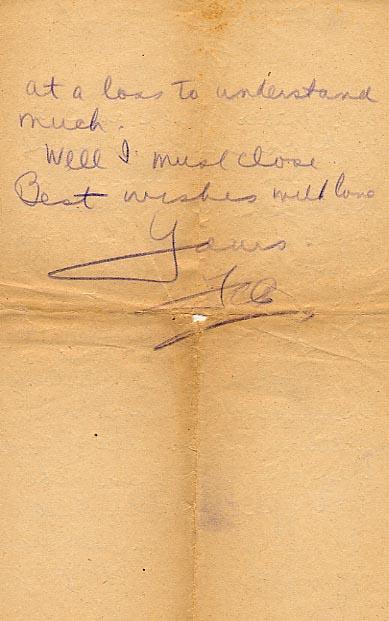 at a loss to understand
much.
Well I must close
Best wishes with love
Yours